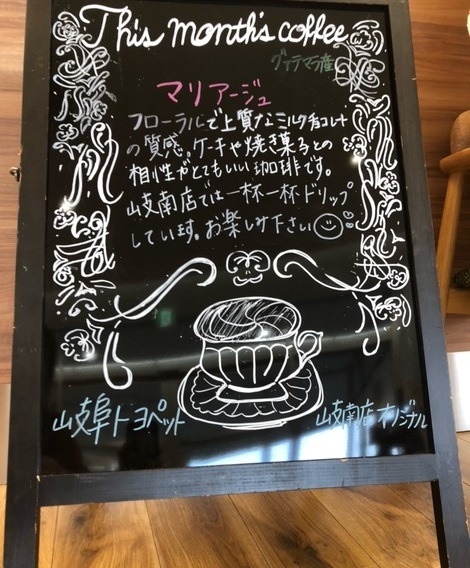 This month's coffee
グァテマラ産
マリアージュ
フローラルで上質なミルクチョコレート
の質感、ケーキや焼き菓子との
相性がとてもいい珈琲です。
岐南店では一杯一杯ドリップ
しています。お楽しみ下さい
岐阜トヨペット
岐南店オリジナル